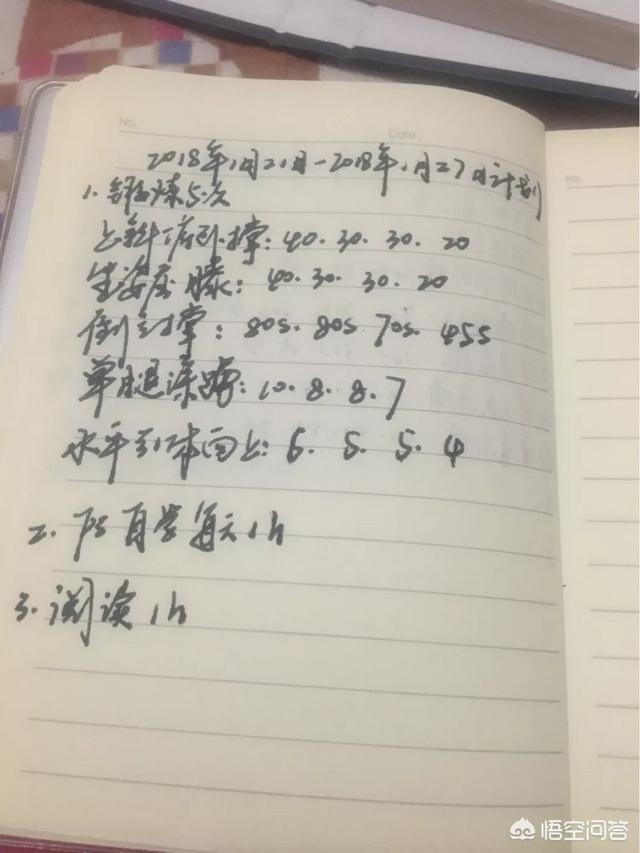 No.
Date
2018年1月21日-2018年1月27日计划
1.锻炼5次
上斜俯卧撑:40.30.30.20
坐姿屈膝:40.30.30.20
倒立撑:80s.80s.70s.45s
单腿深蹲:10.8.8.7
水平引体向上:6.5.5.4
2.PS自学每天1h
3.阅读1h
No.
悟空问答